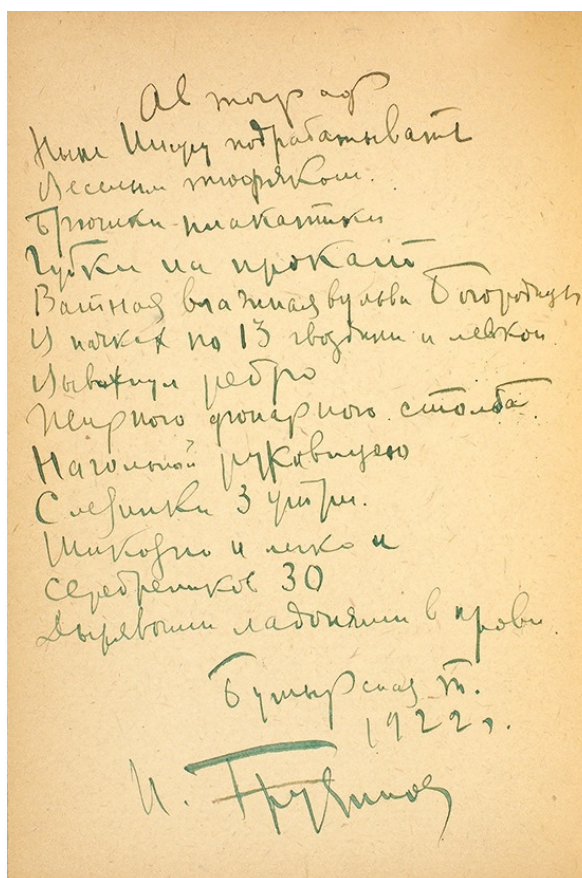 Автограф
подрабатывает
Веселым тюфяком.
Брюшки плакатики
Губки на прокат
Ватная влажная вульва Богородицы
И пачках по 13 гвоздики и левкои
Вывихнул ребро
фонарного столба.
Нагольной рукавицею
Слезинки 3 утри.
Шикозно и легко и
серебреников 30
Дырявыми ладонями в крови.
Бутырская т.
1922 г.
И. Грузинов